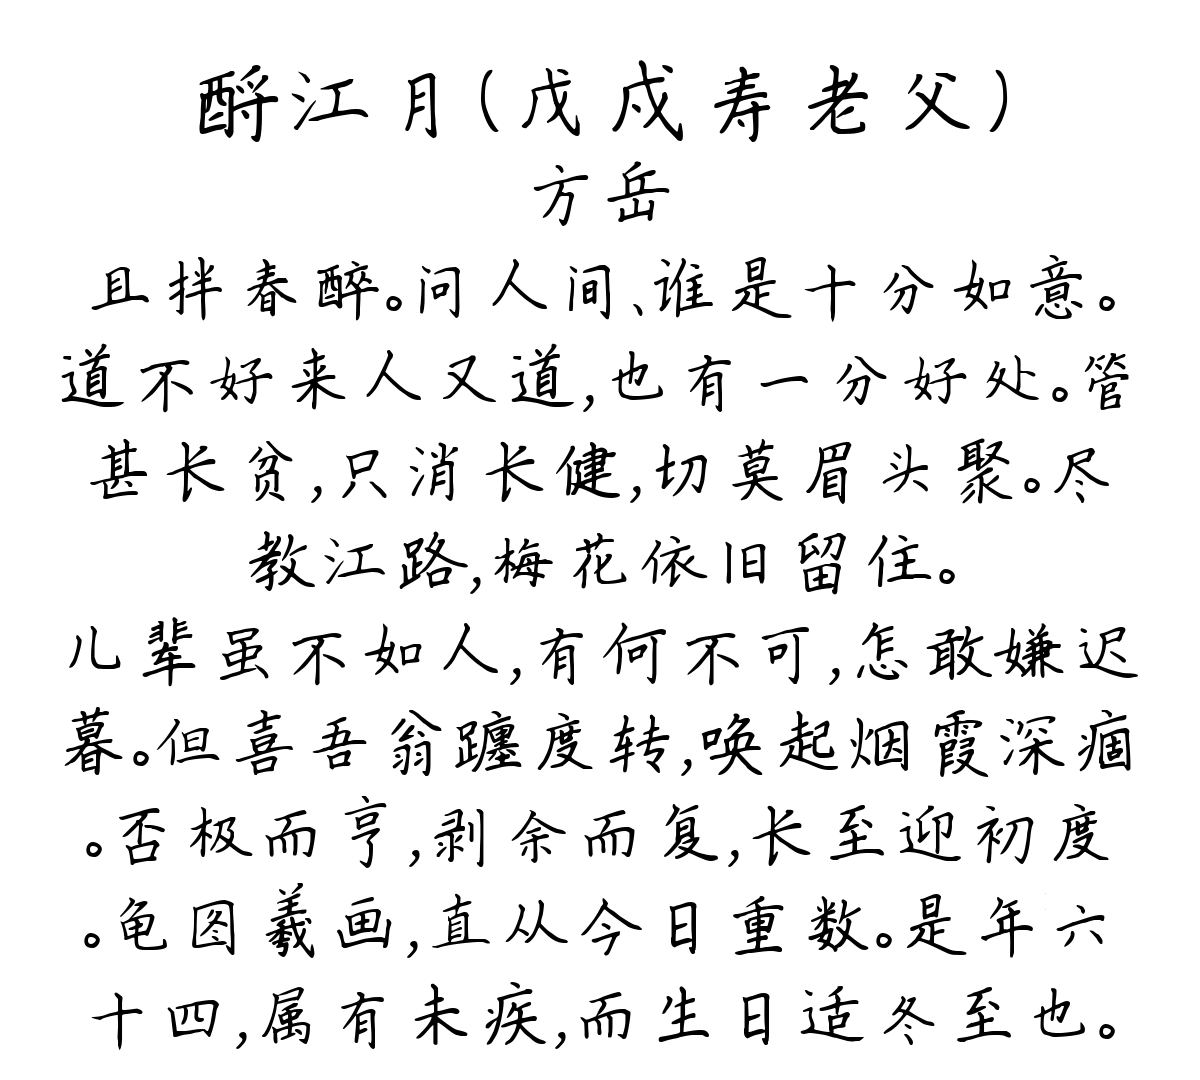 酹江月(戊戍寿老父)
方岳
且拌春醉。问人间、谁是十分如意。
道不好来人又道,也有一分好处。管
甚长贫,只消长健,切莫眉头聚。尽
教江路,梅花依旧留住。
儿辈虽不如人,有何不可,怎敢嫌迟
暮。但喜吾翁躔度转,唤起烟霞深痼
。否极而亨,剥余而复,长至迎初度
。龟图羲画,直从今日重数。是年六
十四,属有未疾,而生日适冬至也。